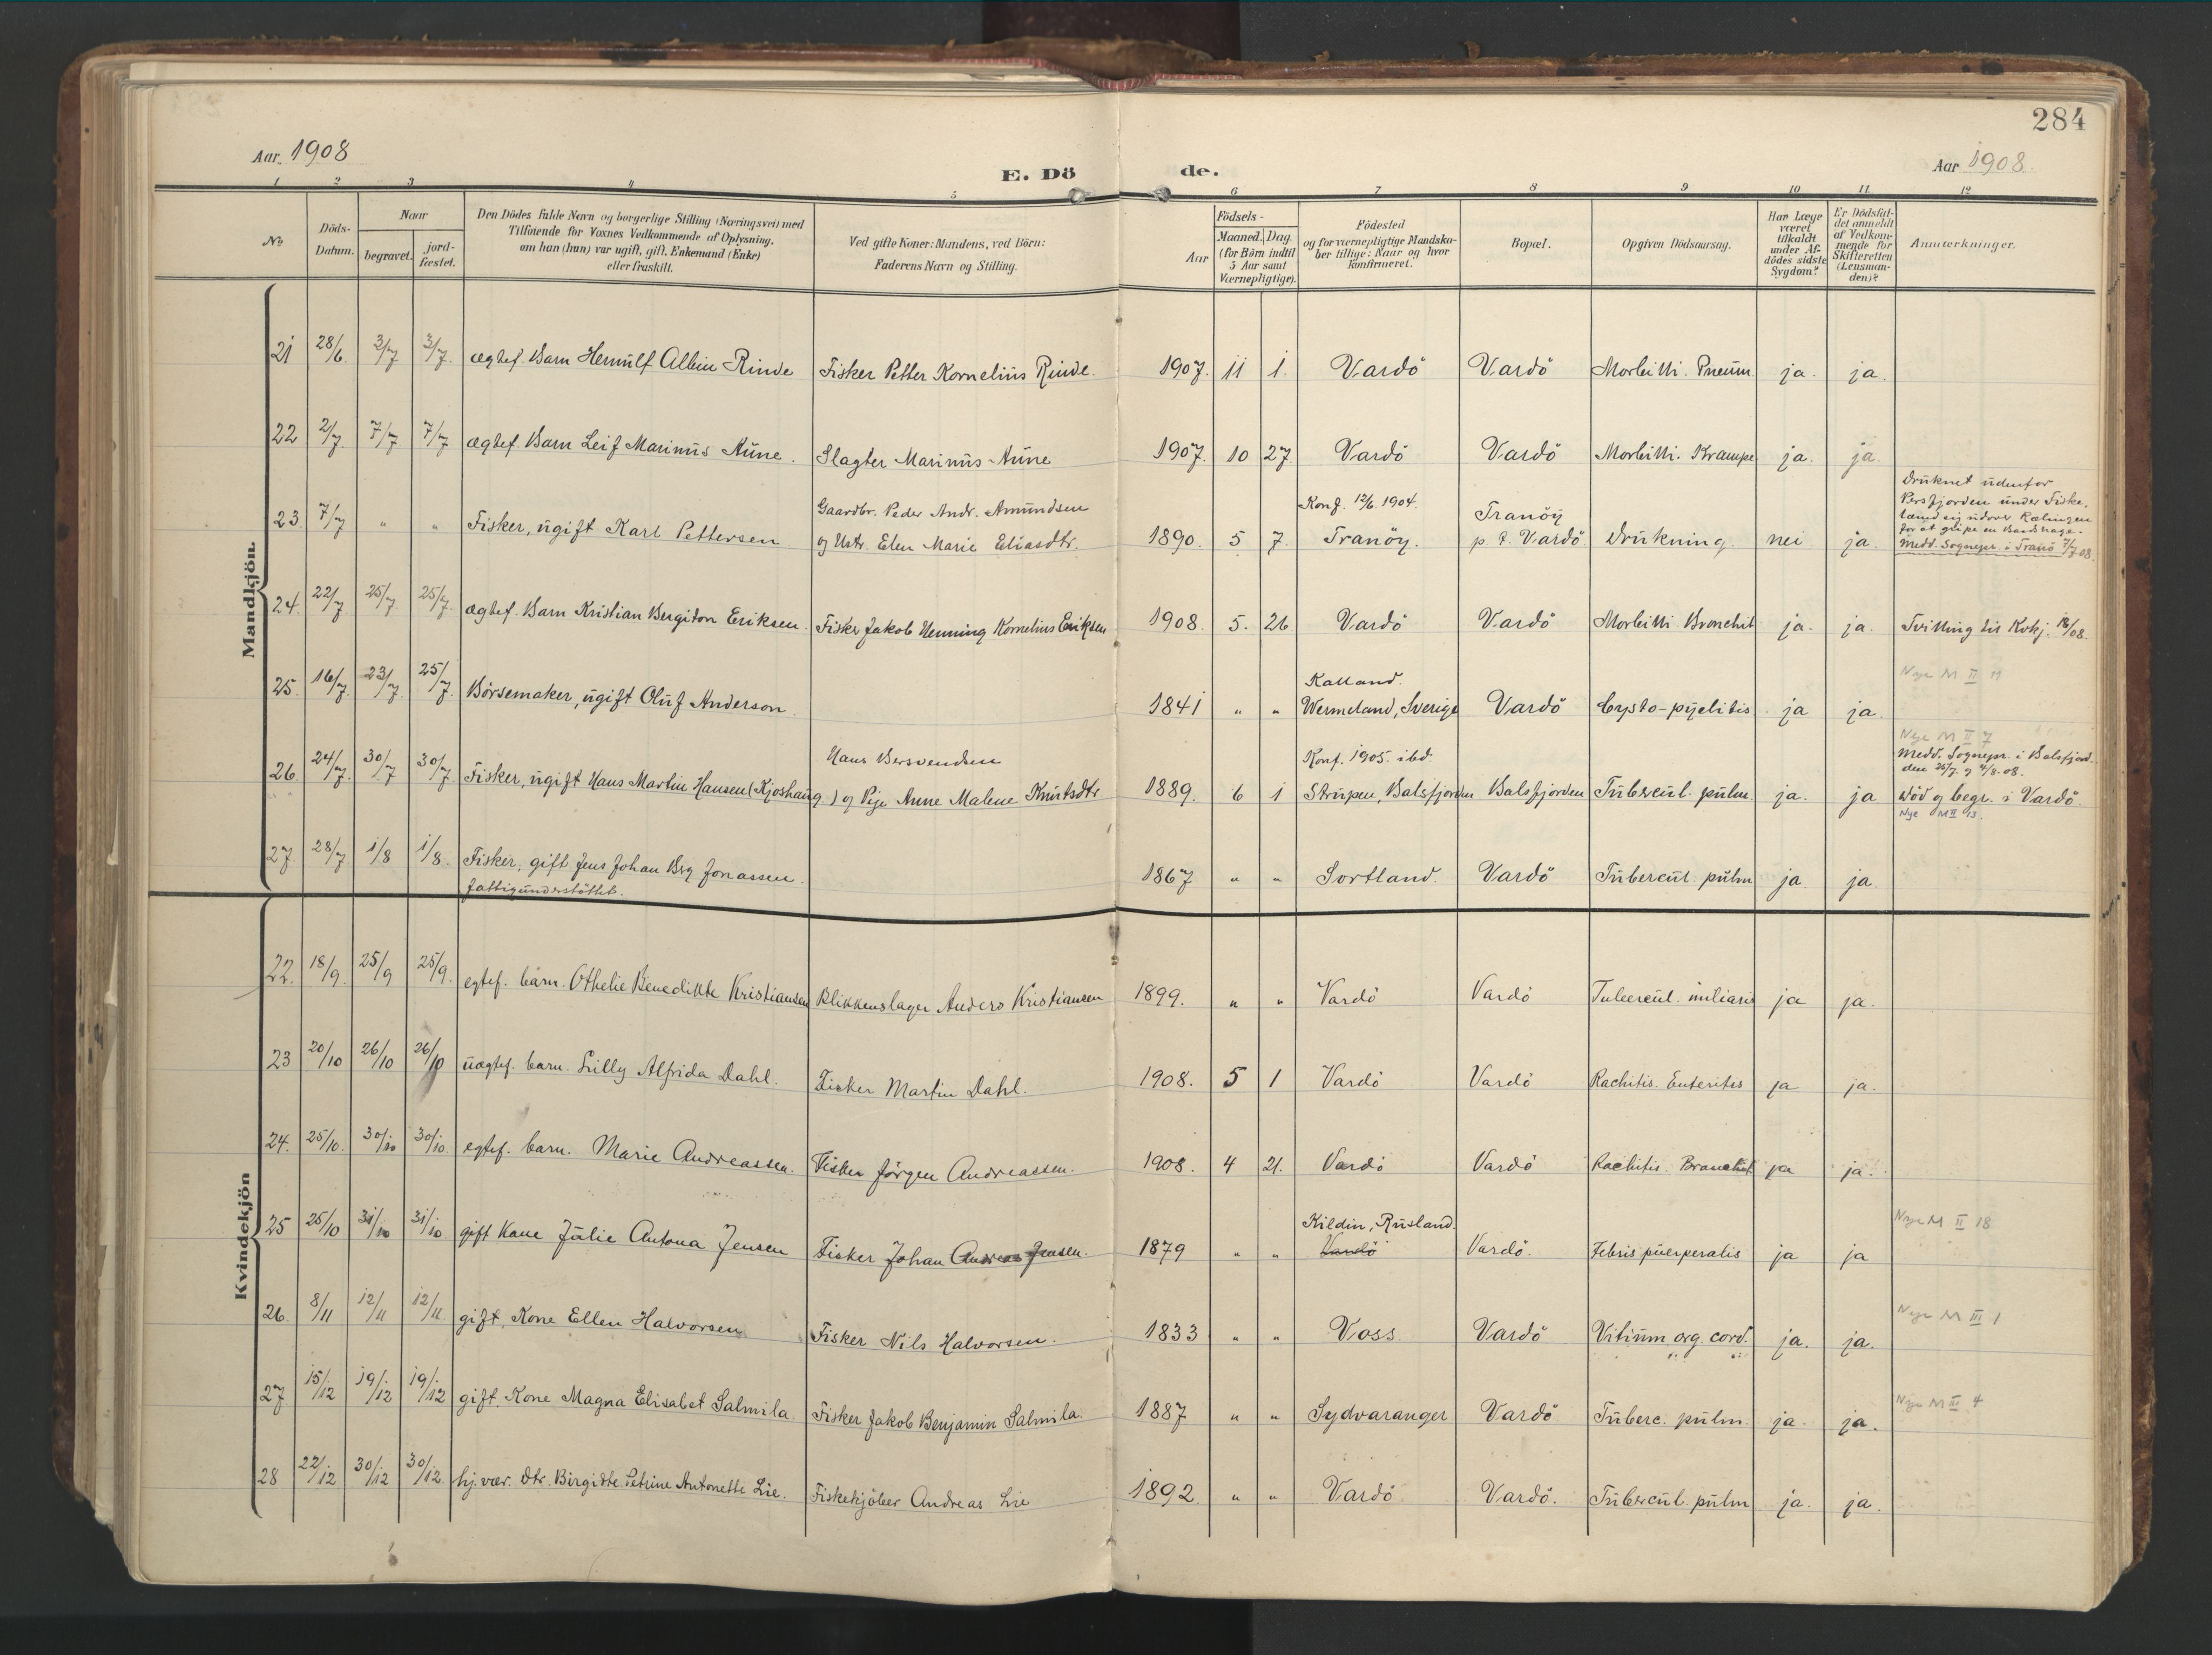 284
Aar. 1908
E. Dö de.
Aar 1908.
1 2 3 4 5 6 7 8 9 10 11 12
No
Döds-Datum.
Naar
begravet.
jord-fæstet.
Den Dödes fulde Navn og borgerlige Stilling (Næringsvei) med
Tilföiende for Voxnes Vedkommende af Oplysning,
om han (hun) var ugift, gift, Enkemand (Enke)
eller fraskilt.
Ved gifte Koner: Mandens, ved Börn:
Faderens Navn og Stilling.
Födsels-
Aar
Maaned. Dag.
(for Börn indtil
5 Aar samt
Værnepligtige).
Födested
og for værnepligtige Mandska-
ber tillige: Naar og hvor
konfirmeret.
Bopæl.
Opgiven Dödsaarsag.
Har Læge
været
tilkaldt
under Af-
dödes sidste
Sygdom?
Er Dödsfal-
det anmeldt
af Vedkom-
mende for
Skifteretten
(Lensman-
den)?
Anmærkninger.
Mandkjön.
21 28/6. 3/7 3/7. ægtef. Barn Hemülf Albin Rinde Fisker Petter Kornelius Rinde. 1907. 11 1. Vardö Vardö Morbilli. Pneum. ja. ja.
22 2/7. 7/7 7/7 ægtef. Barn Leif Marinus Aune. Slagter Marinus Aune 1907. 10 27. Vardö Vardö Morbilli. Krampe ja. ja.
Gaardbr. Peder Andr. Amundsen Konf. 12/6. 1904. Tranöy Druknet udenfor
Persfjorden under Fiske,
23. 7/7 " " Fisker, ugift Karl Pettersen og Ustr. Elen Marie Eliasdtr. 1890. 5 7. Tranöy. p. t. Vardö Drukning. nei ja.
for at gribe en Baadshage.
Medd. Sognepr. i Tranö 7/7 08.
24. 22/7 25/7. 25/7. ægtef. Barn Kristian Bergiton Eriksen. Fisker Jakob Henning Kornelius Eriksen 1908. 5. 26 Vardö Vardö Morbilli Bronchit ja. ja. Tvilling til Kvkj. 18/08.
Kalland. Nye M II 11
25. 16/7. 23/7. 25/7. Börsemaker, ugift Oluf Anderson. 1841 " " Wermeland, Sverige Vardö Cysto-pyelitis ja ja.
Hans Bersvendsen Konf. 1905. ibd. Nye M II 7
Medd. Sognepr. i Balsfjord.
den 25/7. og 4/8. 08.
26. 24/7. 30/7 30/7. Fisker, ugift Hans Martin Hansen (Kjoshaug) og Pige Anne Malene Knutsdtr 1889. 6 1 Strupen, Balsfjorden Balsfjorden Tubercul. pulm. ja. ja Död og begr. i Vardö.
Nye M II 13.
27. 28/7. 1/8 1/8. Fisker, gift Jens Johan Berg Jonassen. 1867 " " Sortland. Vardö Tubercul. pulm ja ja
fattigunderstöttet.
Kvindekjön
22. 18/9. 25/9 25/9. egtef. barn. Othelie Benedikte Kristiansen Blikkenslager Anders Kristiansen 1899. " " Vardö Vardö Tubercul. miliaris ja ja.
23 20/10 26/10 26/10 uægtef. barn. Lilly Alfrida Dahl. Fisker Martin Dahl. 1908. 5 1 Vardö Vardö Rachitis. Enteritis ja ja.
24. 25/10. 30/10 30/10. egtef. barn. Marie Andreassen. Fisker Jörgen Andreassen. 1908. 4 21. Vardö Vardö Rachitis. Bronchit. ja ja.
Kildin, Rusland. Nye M II 18
25 25/10 31/10 31/10 gift Kone Julie Antona Jensen Fisker Johan Andreas Jensen. 1879 " " Vardö Vardö. Febris puerperalis ja ja
Nye M III 1
26. 8/11 12/11 12/11. gift. Kone Ellen Halvorsen Fisker Nils Halvorsen. 1833 " " Voss. Vardö Vitium org. cord. ja. ja.
Nye M III 4
27 15/12 19/12 19/12 gift. Kone Magna Elisabet Salmila. Fisker Jakob Benjamin Salmila. 1887 " " Sydvaranger Vardö Tuberc. pulm. ja. ja.
28 22/12 30/12 30/12. hj. vær. Dtr. Birgitte Petrine Antonette Lie. Fiskekjöber Andreas Lie 1892 " " Vardö Vardö. Tubercul. pulm ja. ja.